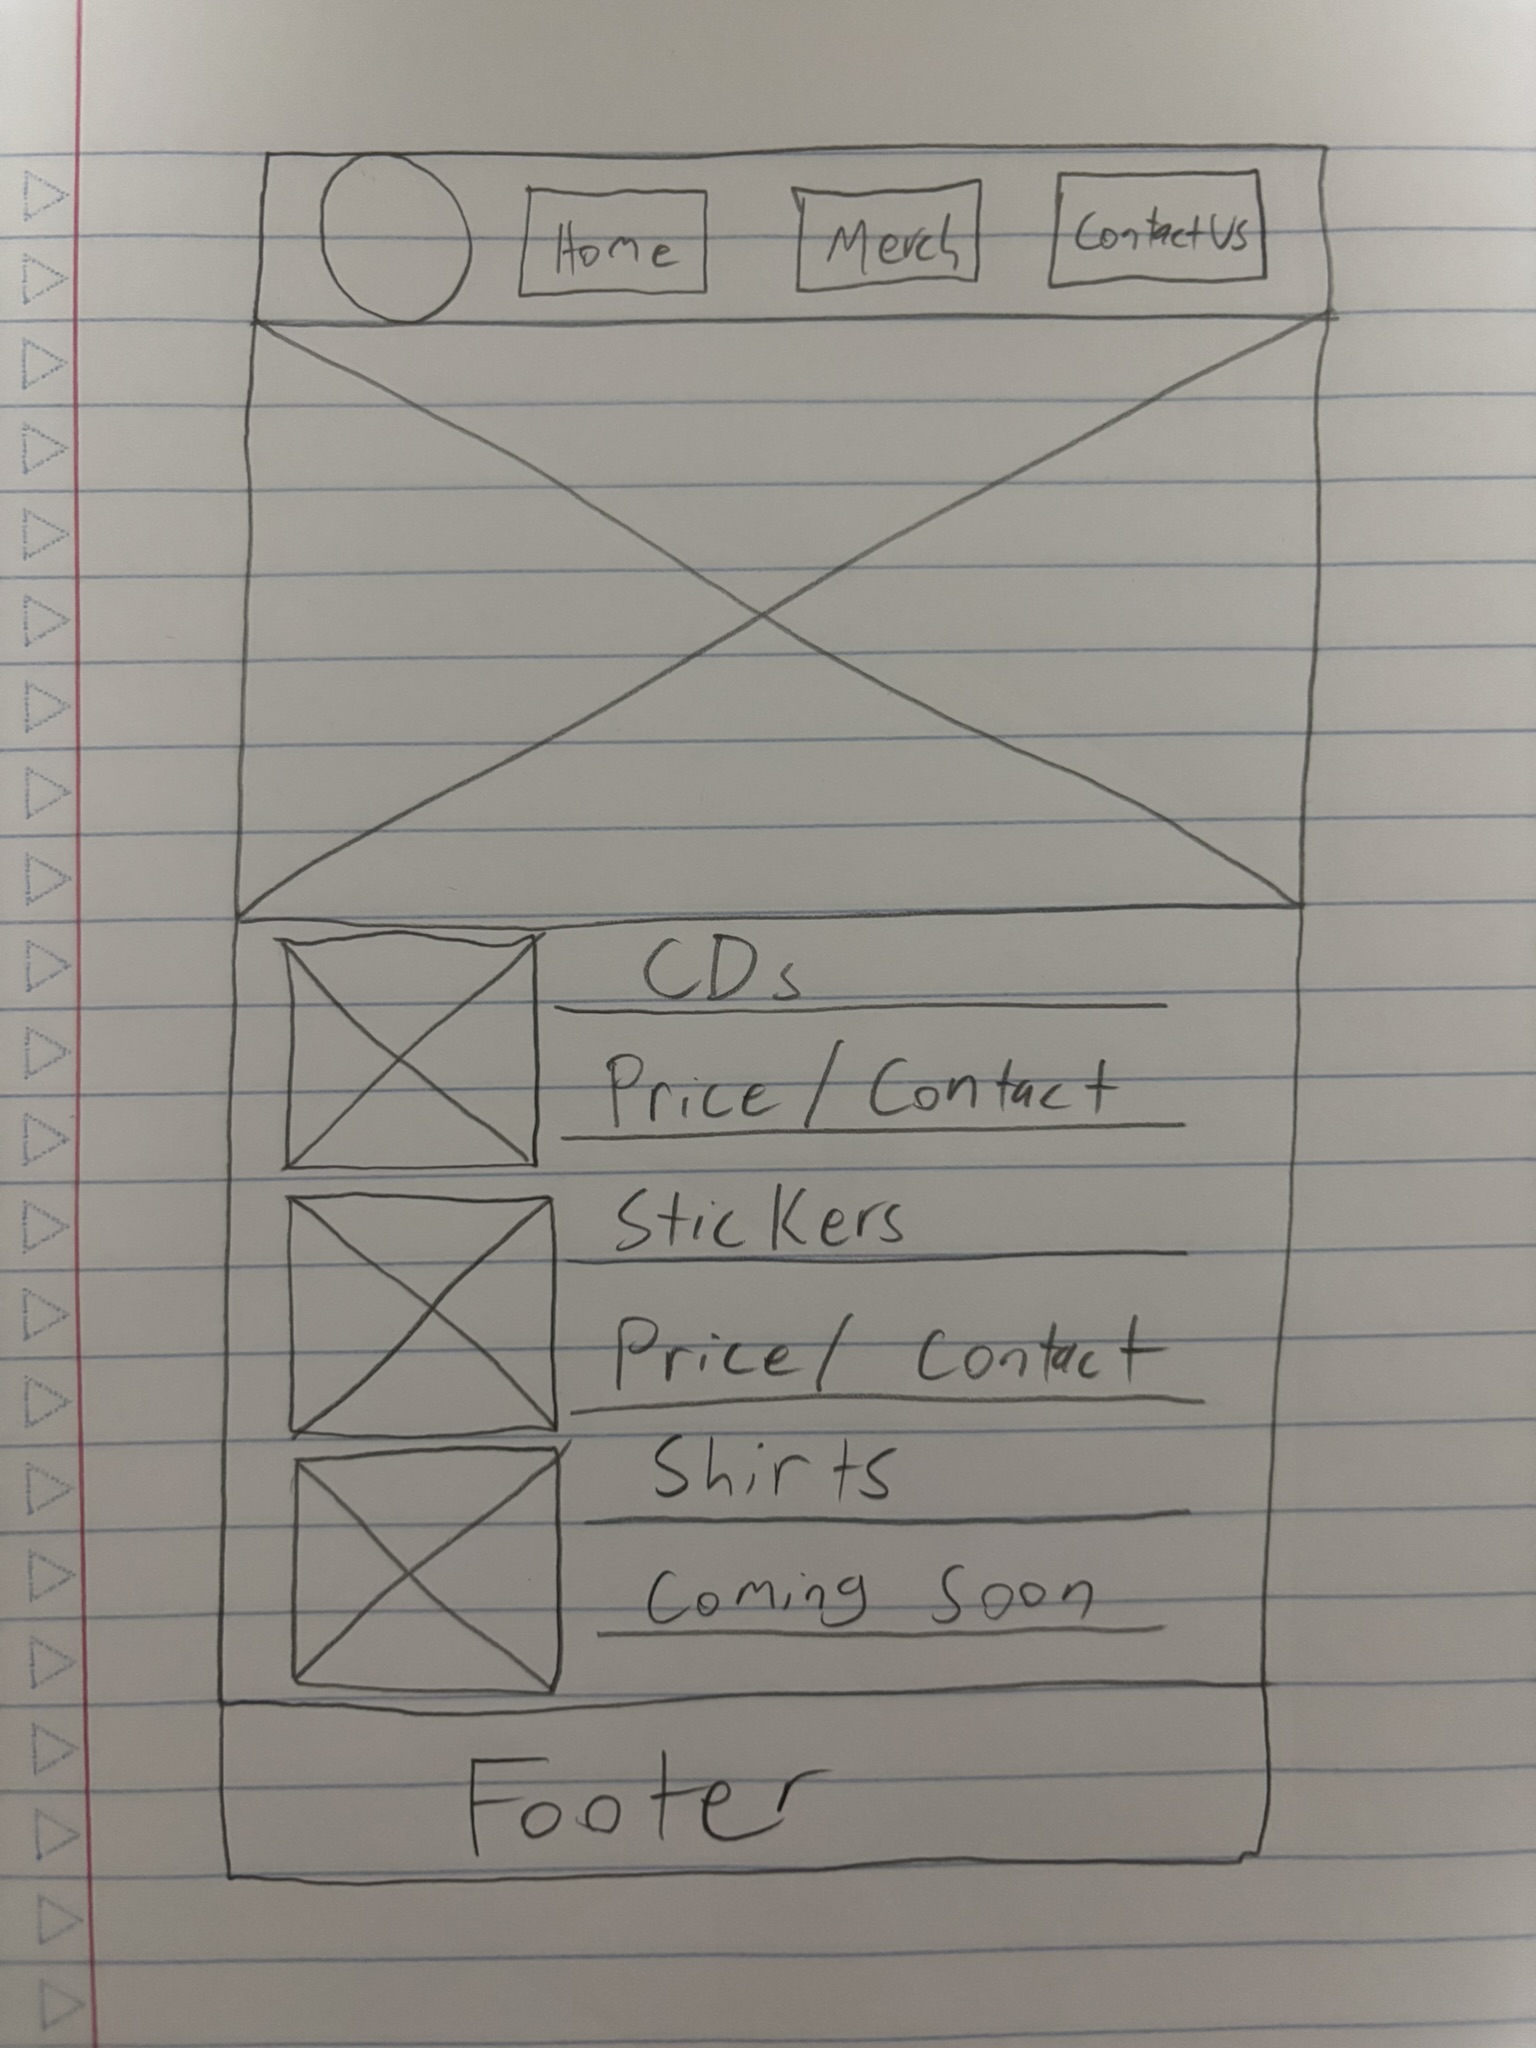 Home Merch Contact Us
CDs
Price / Contact
Stickers
Price / Contact
Shirts
Coming Soon
Footer